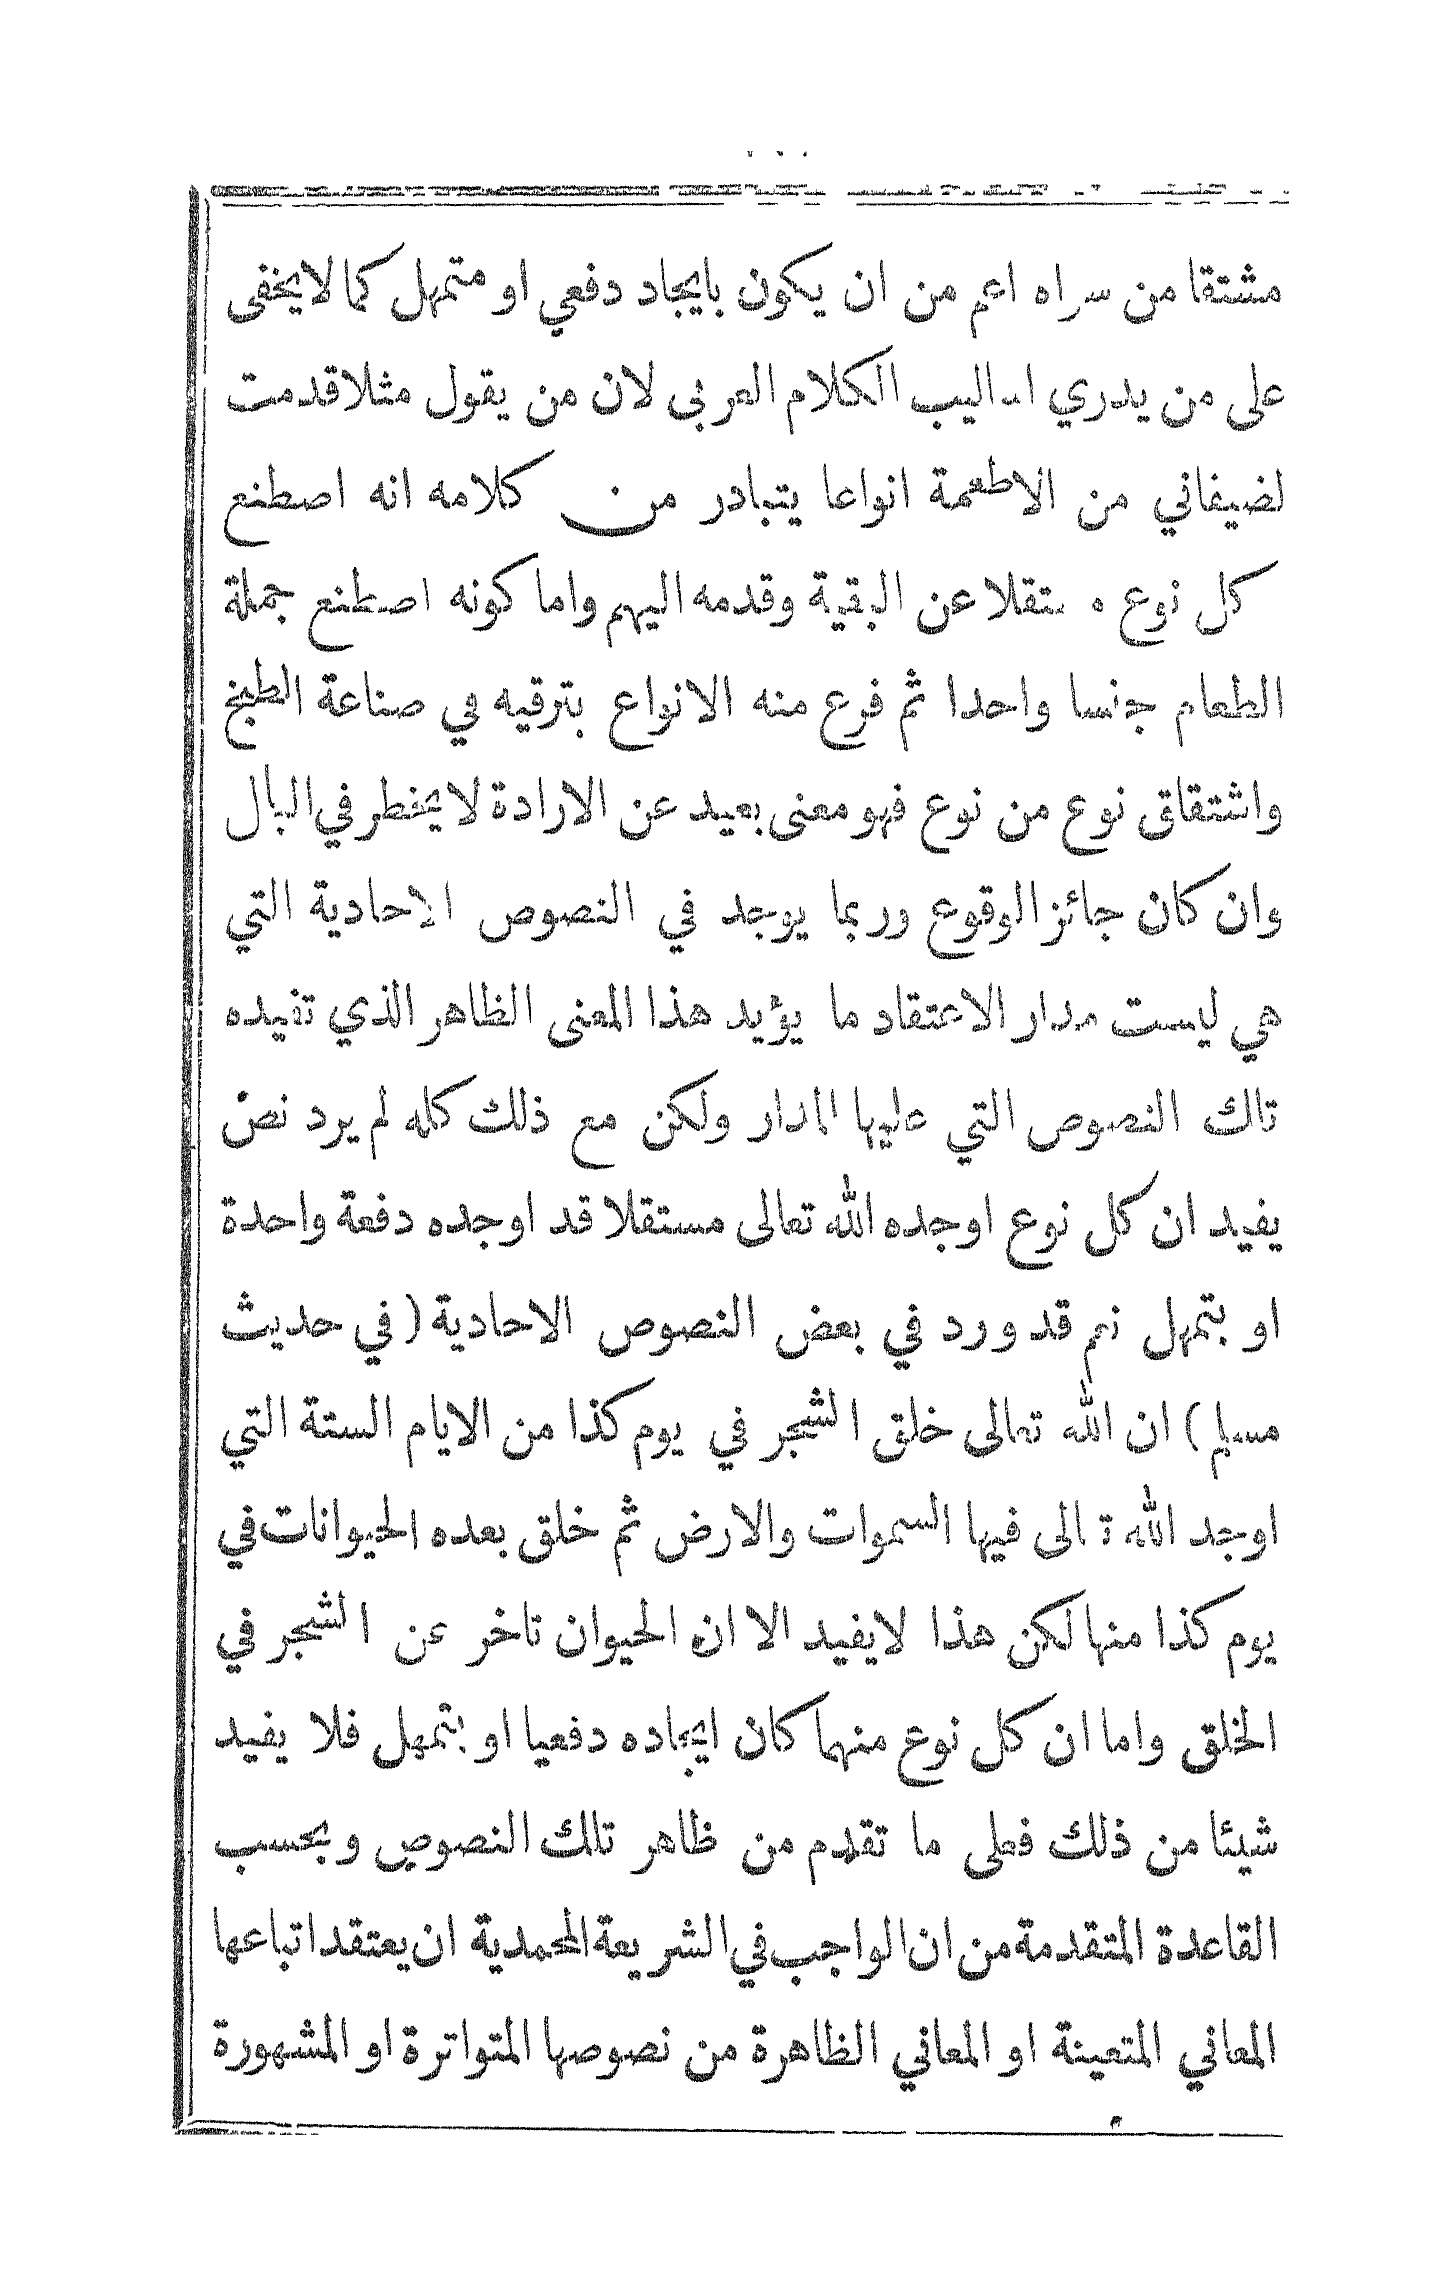 مشتقا من سراه اعم من ان يكون بايجاد دفعي او متمهل كما لا يخفى
على من يدري اساليب الكلام العربي لان من يقول مثلا قدمت
لضيفاني من الاطعمة انواعا يتبادر من كلامه انه اصطنع
كل نوع مستقلا عن البقية وقدمه اليهم واما كونه اصطنع جملة
الطعام جنسا واحدا ثم فرع منه الانواع بترقيه في صناعة الطبخ
واشتقاق نوع من نوع فهو معنى بعيد عن الارادة لا يخطر في البال
وان كان جائز الوقوع وربما يوجد في النصوص الاحادية التي
هي ليست مدار الاعتقاد ما يؤيد هذا المعنى الظاهر الذي تفيده
تلك النصوص التي عليها المدار ولكن مع ذلك كله لم يرد نص
يفيد ان كل نوع اوجده الله تعالى مستقلا قد اوجده دفعة واحدة
او بتمهل نعم قد ورد في بعض النصوص الاحادية (في حديث
مسلم) ان الله تعالى خلق الشجر في يوم كذا من الايام الستة التي
اوجد الله تعالى فيها السموات والارض ثم خلق بعده الحيوانات في
يوم كذا منها لكن هذا لا يفيد الا ان الحيوان تاخر عن الشجر في
الخلق واما ان كل نوع منهما كان ايجاده دفعيا او بتمهل فلا يفيد
شيئا من ذلك فعلى ما تقدم من ظاهر تلك النصوص وبحسب
القاعدة المتقدمة من ان الواجب في الشريعة المحمدية ان يعتقد اتباعها
المعاني المتعينة او المعاني الظاهرة من نصوصها المتواترة او المشهورة